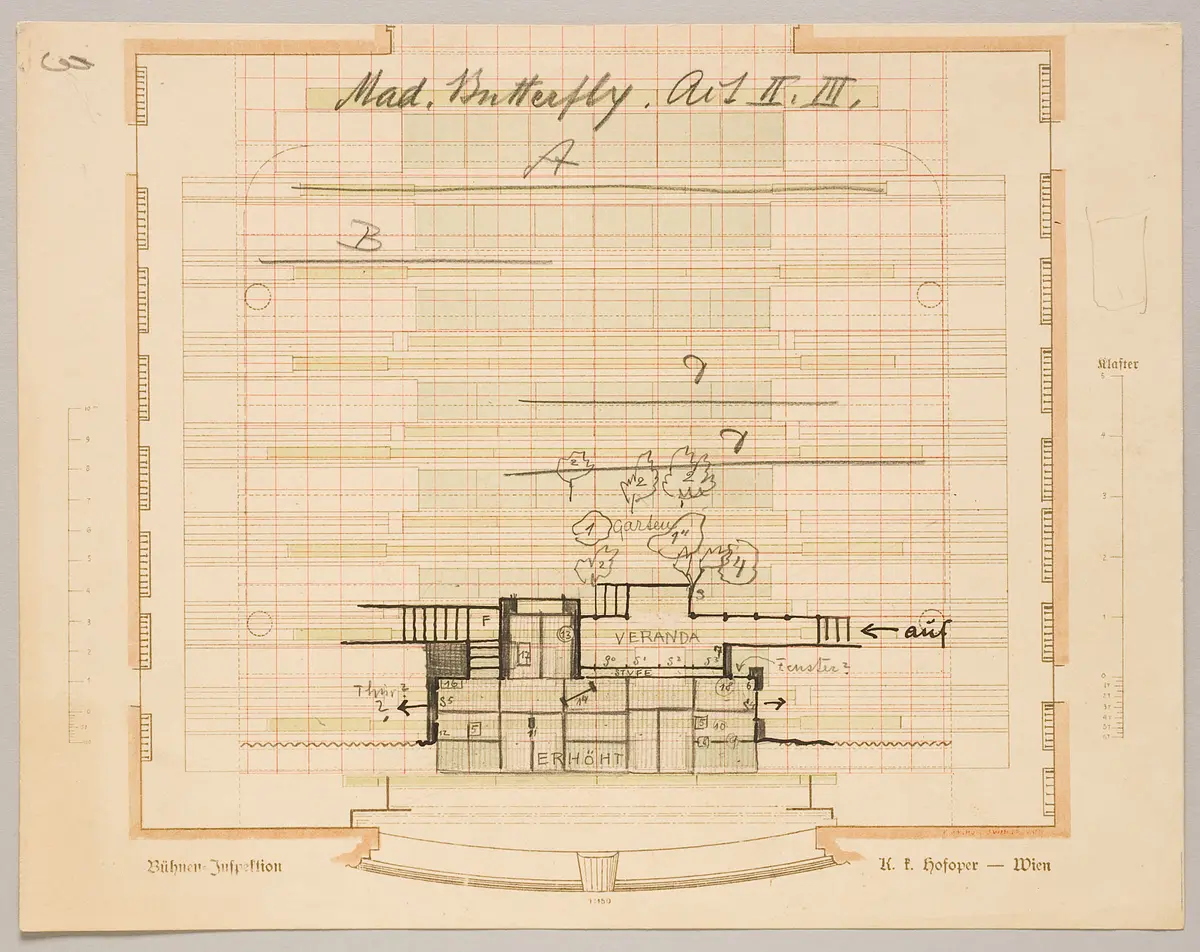 3
Mad. Butterfly. Act II. III.
A
B
Klafter
5
4
3
2
1
0
10
9
8
7
6
5
4
3
2
1
0
2
2
2
1
Garten
1"
2
4
S
F
13
VERANDA
← auf
17
S° S¹ S² S³
7
STUFE
Fenster?
V
Thür?
2
16
S5
14
18
6
S4
12
5
11
5
10
9
ERHÖHT
Bühnen-Inspektion
K. k. Hofoper — Wien
1:150